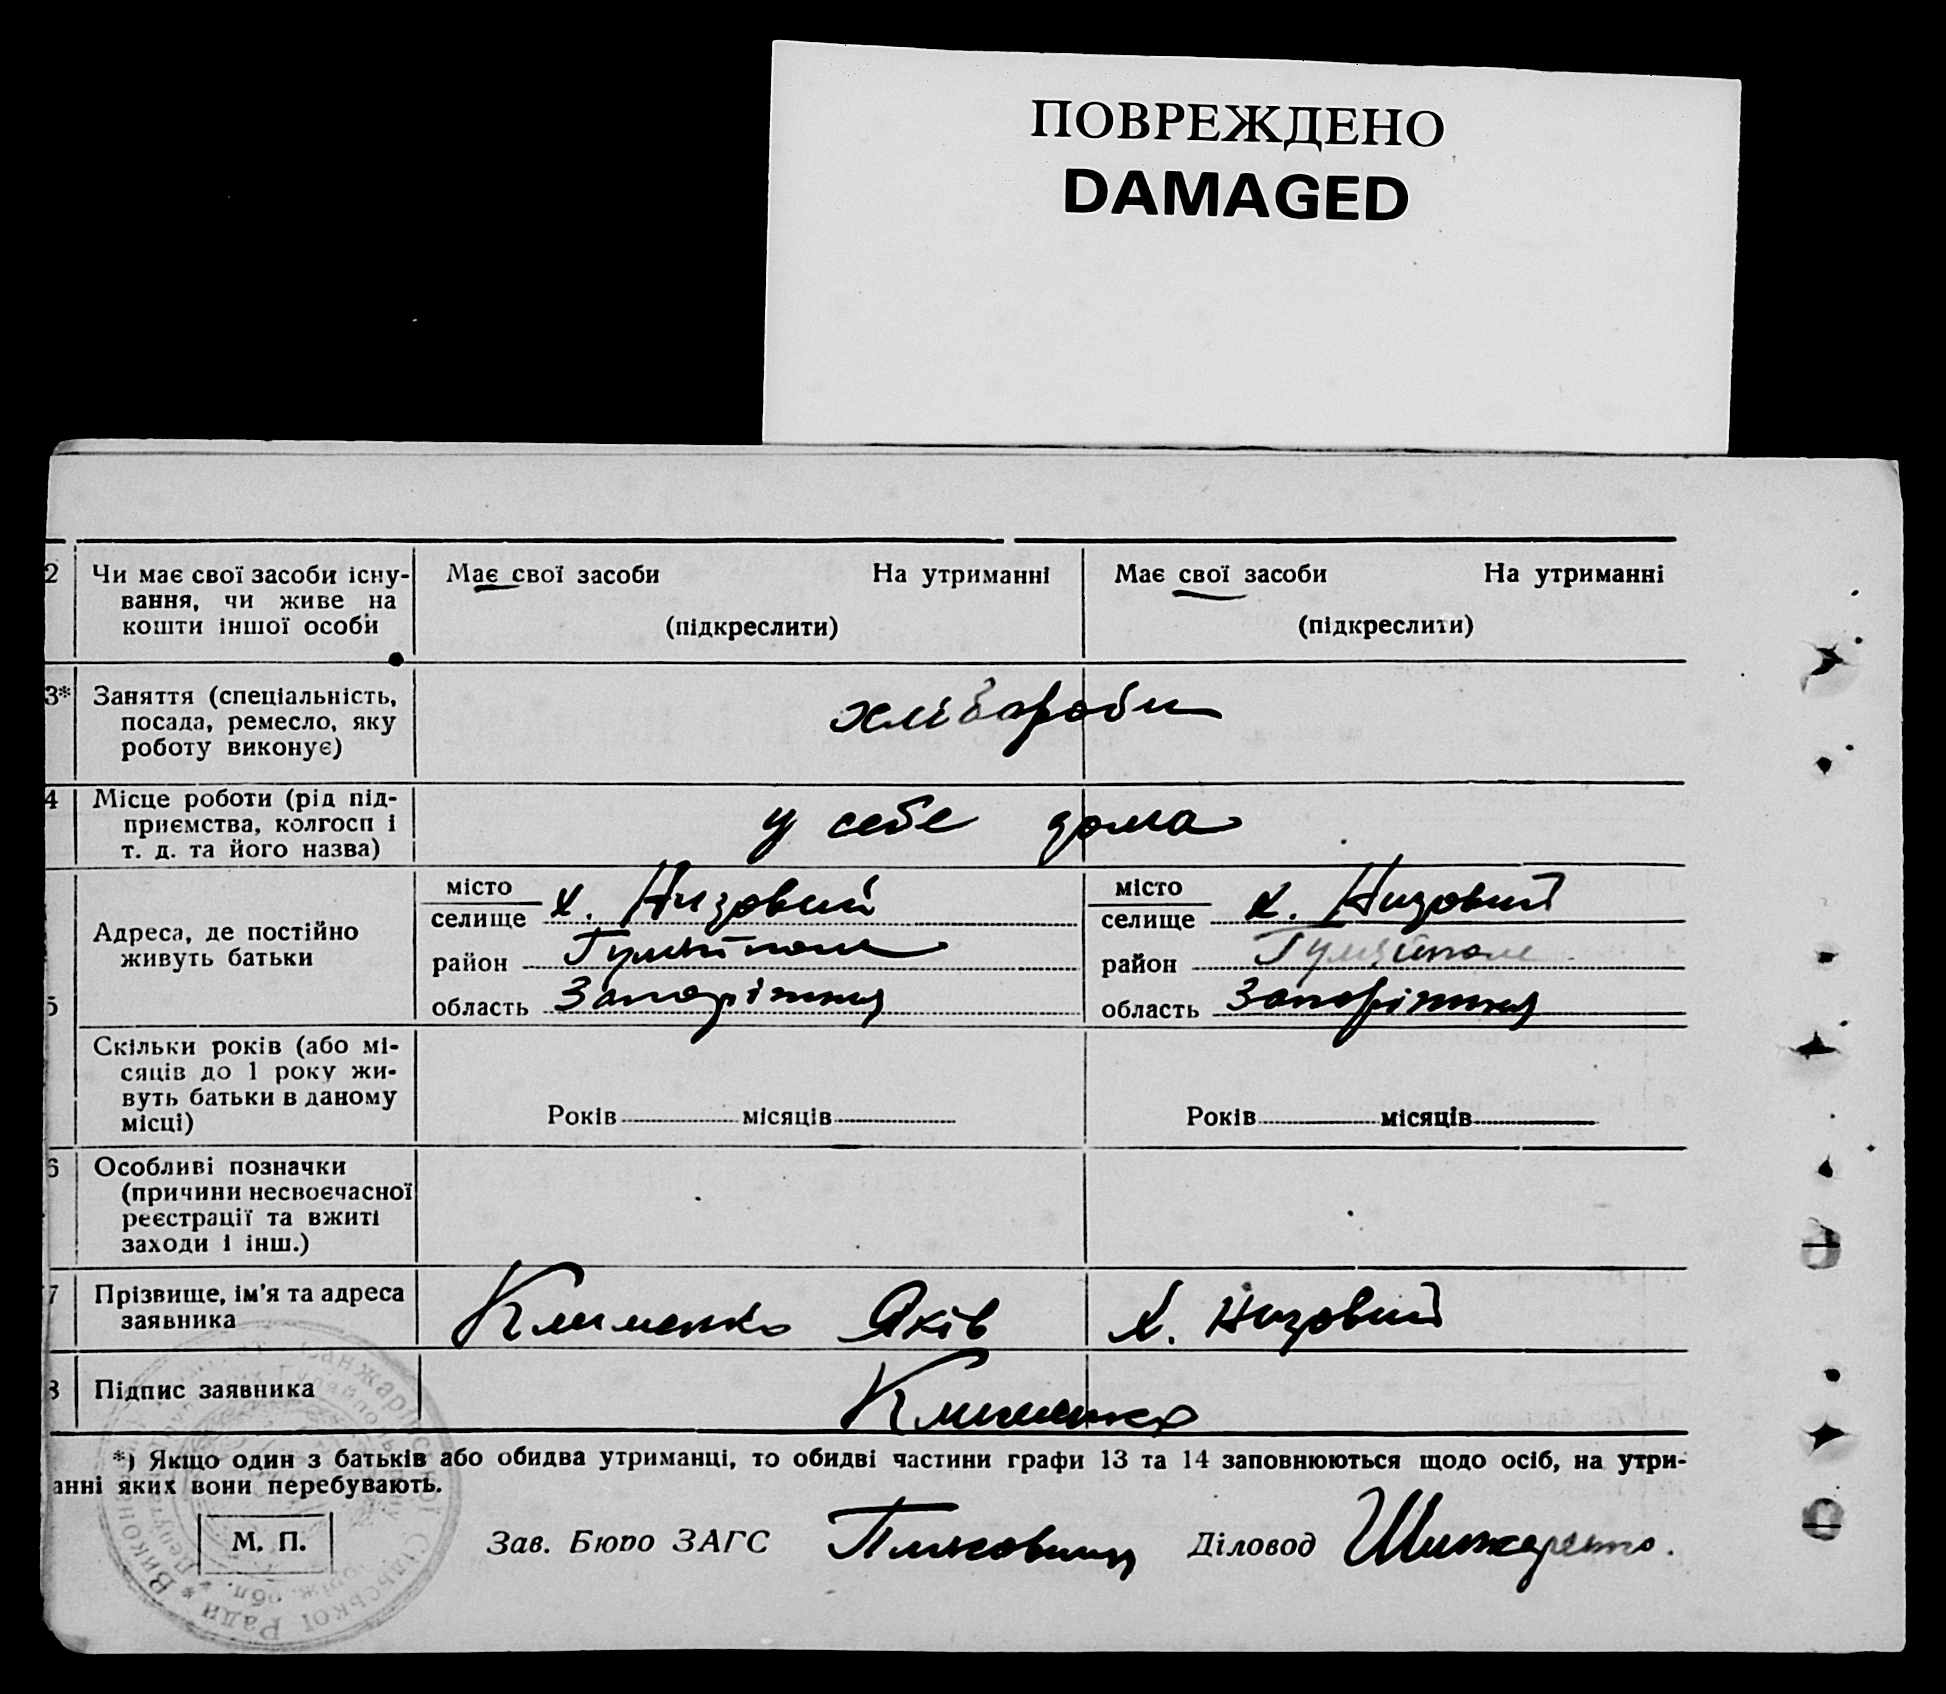 ПОВРЕЖДЕНО
DAMAGED
2 Чи має свої засоби існу- Має свої засоби На утриманні Має свої засоби На утриманні
вання, чи живе на
кошти іншої особи (підкреслити) (підкреслити)
3* Заняття (спеціальність, хлібороби
посада, ремесло, яку
роботу виконує)
4 Місце роботи (рід під- у себе дома
приємства, колгосп і
т. д. та його назва)
5 Адреса, де постійно
живуть батьки
місто
селище х. Низовий
район Гуляйполе
область Запоріжжя
місто
селище х. Низовий
район Гуляйполе
область Запоріжжя
Скільки років (або мі-
сяців до 1 року жи-
вуть батьки в даному
місці) Років місяців Років місяців
6 Особливі позначки
(причини несвоєчасної
реєстрації та вжиті
заходи і інш.)
7 Прізвище, ім'я та адреса Клименко Яків х. Низовий
заявника
8 Підпис заявника Клименко
*) Якщо один з батьків або обидва утриманці, то обидві частини графи 13 та 14 заповнюються щодо осіб, на утри-
анні яких вони перебувають.
М. П. Зав. Бюро ЗАГС Діловод
Сільської Ради